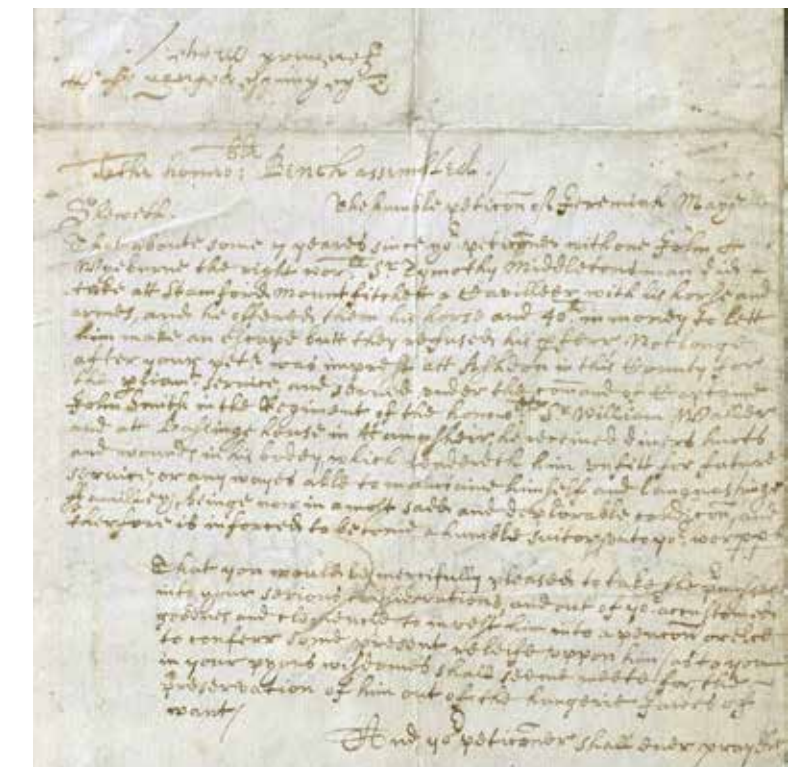 To the honno: ble Bench assembled./
Sheweth. The humble peticõn of Jeremiah Maye
That aboute some 7 yeares since yor peticõner with one John
Wyeburne the right worll Sr Tymothy Middletons man did
take att Stansford Mountfitchett a Cavilleer with his horse and
armes, and he offered them his horse and 40s in money to lett
him make an escape butt they refused his offers Not longe
after your petr was imprest att in this County for
the service, and served under the comand of Captaine
John Smith in the Regiment of the honoble Sr William Waller
and at Basinge house in Hampsheir, he received divers hurts
and wounds in his body which rendreth him unfitt for future
service, or any wayes able to maintaine himself and
familley, beinge now in a most sadd and deplorable condicõn, and
therfore is inforced to become a humble suitor unto yor worpps
That you would be mercifully pleased to take the
into your serious considerations, and out of yor accustomed
goodnes and clemencie to invest him into a pencõn or else
to conferr some present releife uppon him / as to you
in your pyous wisdomes shall seeme meete for the
preservation of him out of the hungerie Jawes of
want /
And yor peticõner shall ever pray &c